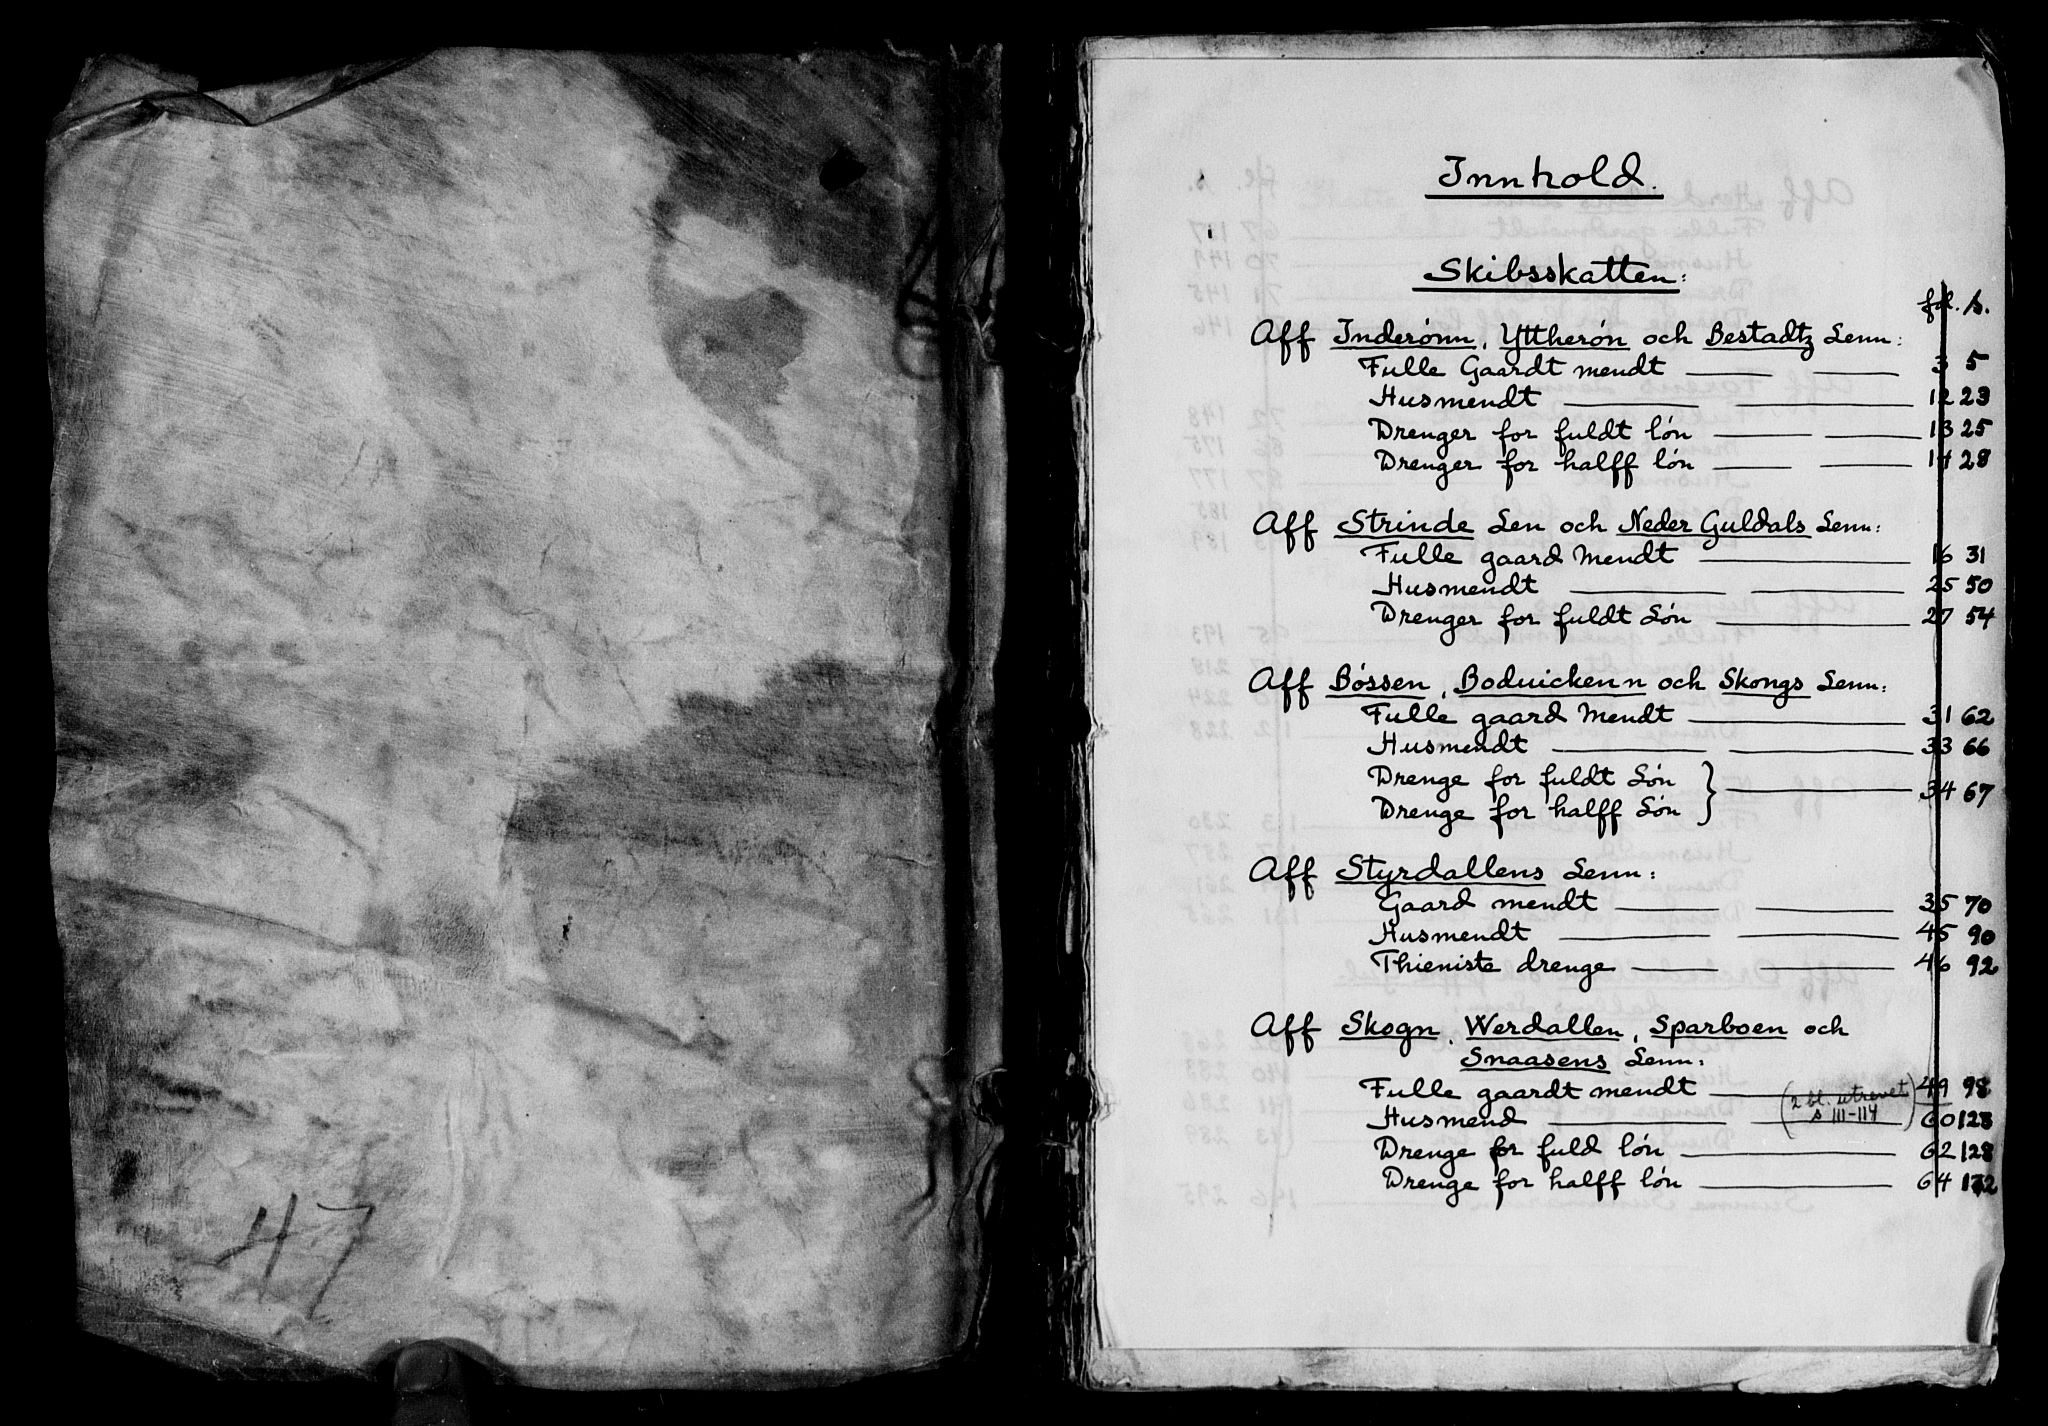 47
Innhold.
Skibsskatten:
fol. s.
Aff Inderønn, Yttherøn och Bestadtz Lenn:
Fulle Gaardt mendt 3 5
Husmendt 12 23
Drenger for fuldt løn 13 25
Drenger for halff løn 14 28
Aff Strinde Len och Neder Guldals Lenn:
Fulle gaard Mendt 16 31
Husmendt 25 50
Drenger for fuldt Løn 27 54
Aff Bøssen, Boduickenn och Skongs Lenn:
Fulle gaard Mendt 31 62
Husmendt 33 66
Drenge for fuldt Løn } 34 67
Drenge for halff Løn
Aff Styrdallens Lenn:
Gaard mendt 35 70
Husmendt 45 90
Thieniste drenge 46 92
Aff Skogn, Werdallen, Sparboen och
Snaasens Lenn:
Fulle gaardt mendt 49 98
(2 bl. utrevet
s 111-114)
Husmend 60 123
Drenge for fuld løn 62 128
Drenge for halff løn 64 132